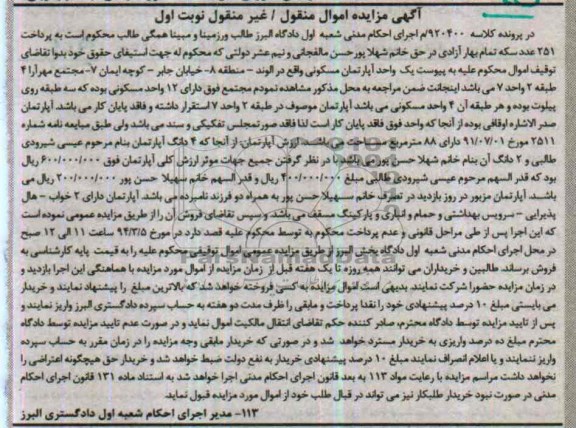 آگهی مزایده اموال منقول / غیر منقول نوبت اول
در پرونده کلاسه ۹۲۰۴۰۰/م اجرای احکام مدنی شعبه اول دادگاه البرز طالب ورزمینا و مبینا همگی طالب محکوم است به پرداخت
۲۵۱ عدد سکه تمام بهار آزادی در حق خانم شهلا پور حسن مالفجانی و نیم عشر دولتی که محکوم له جهت استیفای حقوق خود بدوا تقاضای
توقیف اموال محکوم علیه به پیوست یک واحد آپارتمان مسکونی واقع در الوند - منطقه ۸- خیابان جابر - کوچه ایمان ۷- مجتمع مهرآرا ۴
طبقه ۲ واحد ۷ می باشد اینجانب ضمن مراجعه به محل مذکور مشاهده نمودم مجتمع فوق دارای ۱۲ واحد مسکونی بوده که سه طبقه روی
پیلوت بوده و هر طبقه آن ۴ واحد مسکونی می باشد آپارتمان موصوف در طبقه ۲ واحد ۷ استقرار داشته و فاقد پایان کار می باشد. آپارتمان
صدر الاشاره اوقافی بوده از آنجا که واحد فوق فاقد پایان کار است لذا فاقد صورتمجلس تفکیکی و سند می باشد ولی طبق مبایعه نامه شماره
۲۵۱۱ مورخ ۹۱/۰۷/۰۱ دارای ۸۸ مترمربع مساحت می باشد. ارزش آپارتمان: از آنجا که ۴ دانگ آپارتمان بنام مرحوم عیسی شیرودی
طالبی و ۲ دانگ آن بنام خانم شهلا حسن پور می باشد با در نظر گرفتن جمیع جهات موثر ارزش کلی آپارتمان فوق ۶۰۰/۰۰۰/۰۰۰ ریال
بود که قدر السهم مرحوم عیسی شیرودی طالبی مبلغ ۴۰۰/۰۰۰/۰۰۰ ریال و قدر السهم خانم سهیلا حسن پور ۲۰۰/۰۰۰/۰۰۰ ریال می
باشد. آپارتمان مزبور در روز بازدید در تصرف خانم سهیلا حسن پور به همراه دو فرزند نامبرده می باشد. آپارتمان دارای ۲ خواب - هال
پذیرایی - سرویس بهداشتی و حمام و انباری و پارکینگ مسقف می باشد و سپس تقاضای فروش آن را از طریق مزایده عمومی نموده است
که این اجرا پس از طی مراحل قانونی و عدم پرداخت محکوم به توسط محکوم علیه قصد دارد در مورخ ۹۴/۳/۵ ساعت ۱۱ الی ۱۲ صبح
در محل اجرای احکام مدنی شعبه اول دادگاه بخش البرز از طریق مزایده عمومی اموال توقیفی محکوم علیه را به قیمت پایه کارشناسی به
فروش برساند. طالبین و خریداران می توانند همه روزه تا یک هفته قبل از زمان مزایده از اموال مورد مزایده با هماهنگی این اجرا بازدید و
در زمان مزایده حضورا شرکت نمایند. بدیهی است اموال مزایده به کسی فروخته خواهد شد که بالاترین مبلغ را پیشنهاد نمایند و خریدار
می بایستی مبلغ ۱۰ درصد پیشنهادی خود را نقدا پرداخت و مابقی را ظرف مدت دو هفته به حساب سپرده دادگستری البرز واریز نمایند و
پس از تایید مزایده توسط دادگاه محترم، صادر کننده حکم تقاضای انتقال مالکیت اموال نماید و در صورت عدم تایید مزایده توسط دادگاه
محترم مبلغ ده درصد واریزی به خریدار مسترد خواهد شد و در صورتی که خریدار مابقی وجه مزایده را در زمان مقرر به حساب سپرده
واریز ننمایند و یا اعلام انصراف نمایند مبلغ ۱۰ درصد پیشنهادی خریدار به نفع دولت ضبط خواهد شد و خریدار حق هیچگونه اعتراضی را
نخواهد داشت مراسم مزایده با رعایت مواد ۱۱۳ به بعد قانون اجرای احکام مدنی اجرا خواهد شد به استناد ماده ۱۳۱ قانون اجرای احکام
مدنی در صورت نبود خریدار طلبکار نیز می تواند در قبال طلب خود از اموال مورد مزایده قبول نماید.
۱۱۳- مدیر اجرای احکام شعبه اول دادگستری البرز